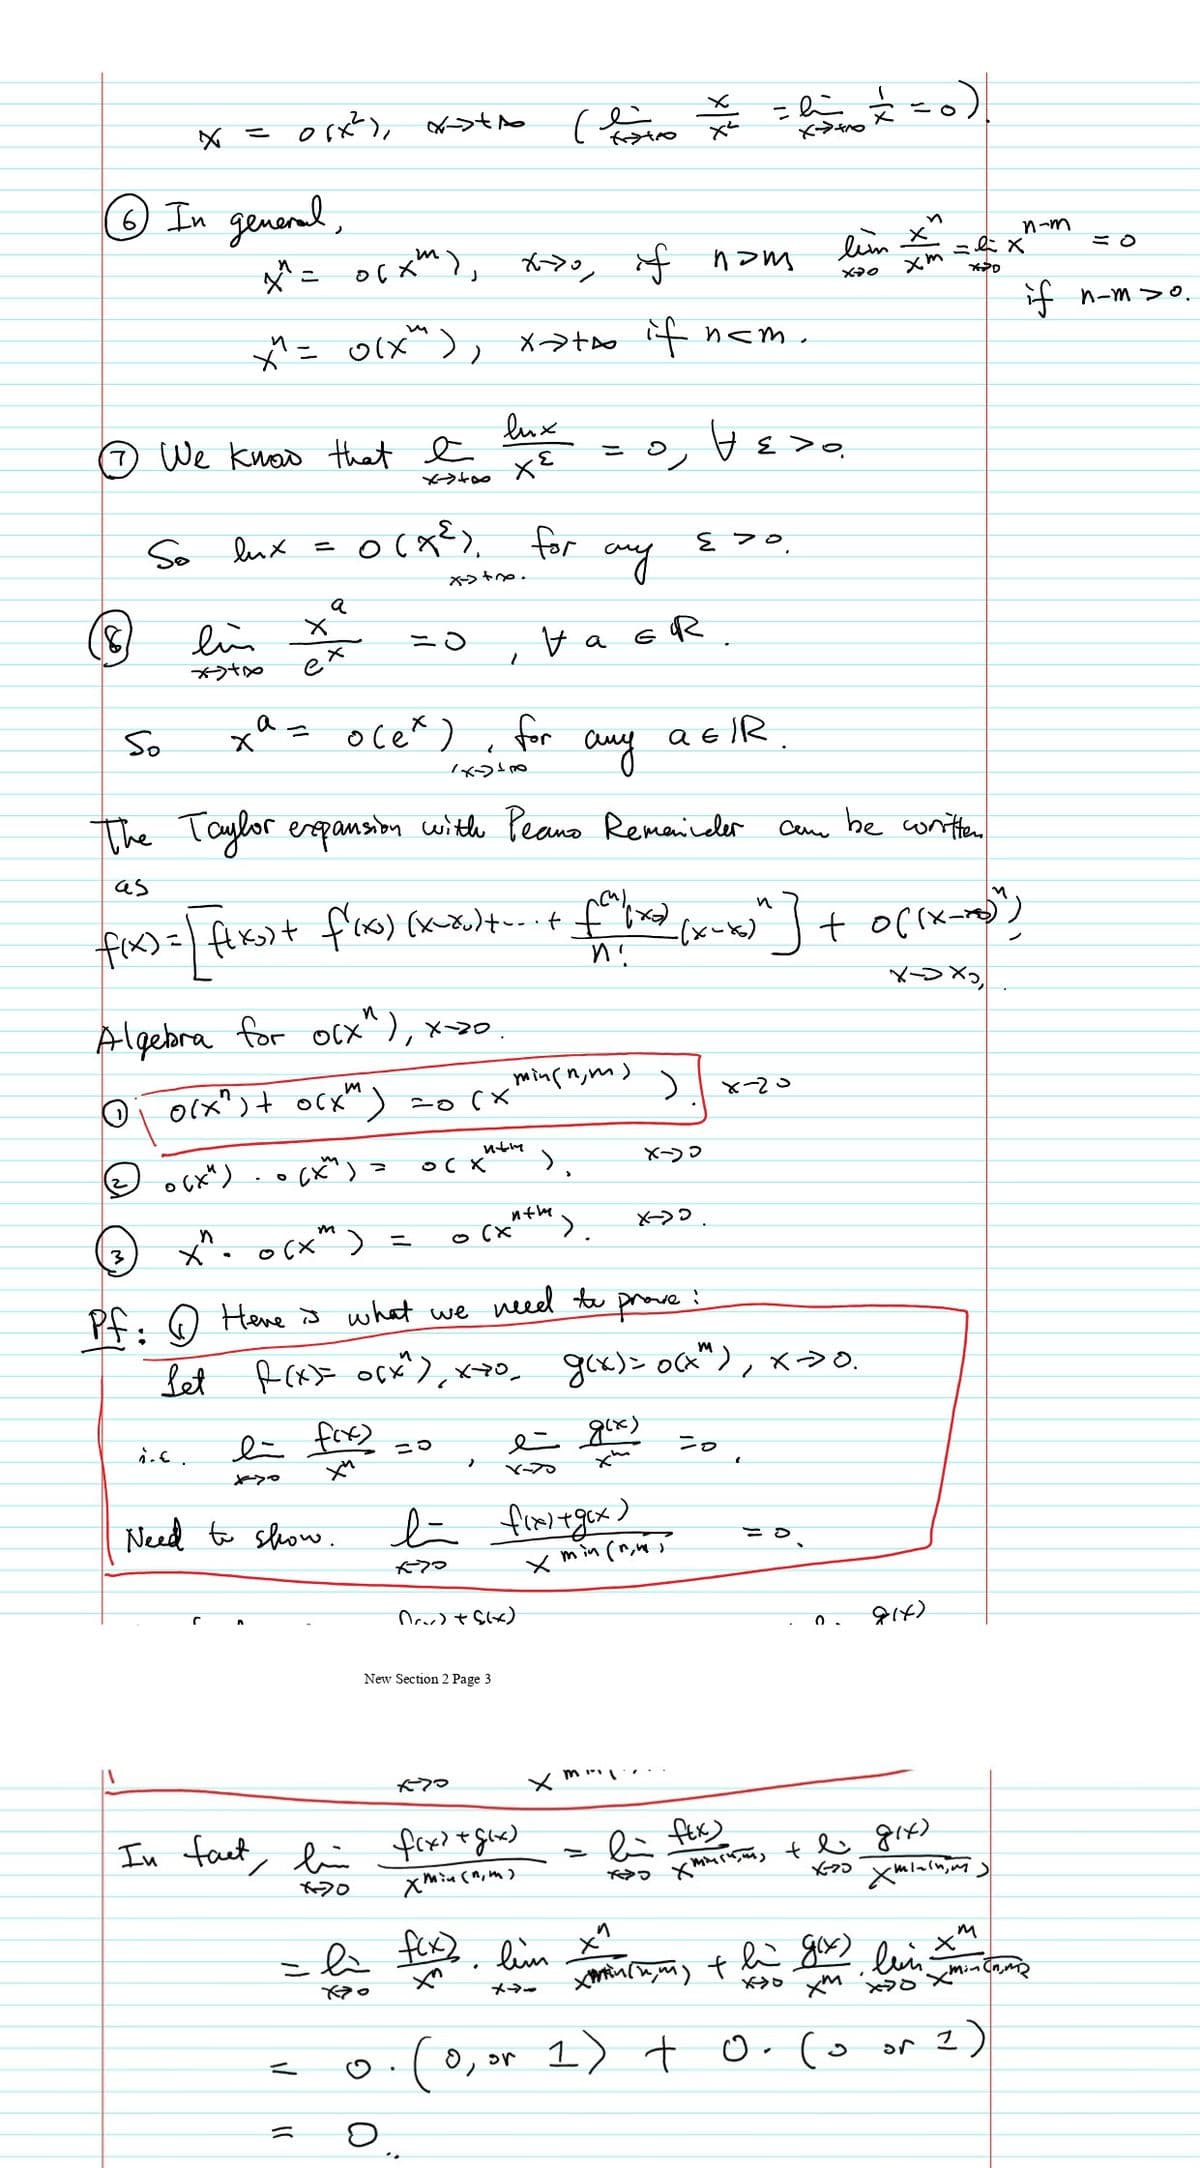 x = o(x²), x→+∞ ( lim x→+∞ x/x² = lim x→+∞ 1/x = 0 ).
⑥ In general,
xⁿ = o(x^m), x→0, if n>m lim x→0 xⁿ/x^m = lim x→0 x^(n-m) = 0
if n-m>0.
xⁿ = o(x^m), x→+∞ if n<m.
⑦ We know that lim x→+∞ lnx/x^ε = 0, ∀ ε>0.
So lnx = o(x^ε), for any ε>0.
x→+∞.
⑧ lim x→+∞ x^a/e^x = 0, ∀ a ∈ ℝ.
So x^a = o(e^x), for any a ∈ ℝ.
, x→+∞
The Taylor expansion with Peano Remainder can be written
as
f(x) = [f(x₀) + f'(x₀)(x-x₀) + ... + f^(n)(x₀)/n! (x-x₀)ⁿ] + o((x-x₀)ⁿ),
x→x₀,.
Algebra for o(xⁿ), x→0.
① o(xⁿ) + o(x^m) = o(x^min(n,m)). x→0
② o(xⁿ) . o(x^m) = o(x^(n+m)). x→0
③ xⁿ . o(x^m) = o(x^(n+m)). x→0.
Pf: ① Here is what we need to prove:
Let f(x) = o(xⁿ), x→0, g(x) = o(x^m), x→0.
i.e. lim x→0 f(x)/xⁿ = 0, lim x→0 g(x)/x^m = 0,
Need to show. lim x→0 (f(x)+g(x))/x^min(n,m) = 0.
g(x)
New Section 2 Page 3
x→0 x
In fact, lim x→0 (f(x)+g(x))/x^min(n,m) = lim x→0 f(x)/x^min(n,m) + lim x→0 g(x)/x^min(n,m)
= lim x→0 f(x)/xⁿ . lim x→0 xⁿ/x^min(n,m) + lim x→0 g(x)/x^m . lim x→0 x^m/x^min(n,m)
= 0.(0, or 1) + 0.(0 or 1)
= 0..